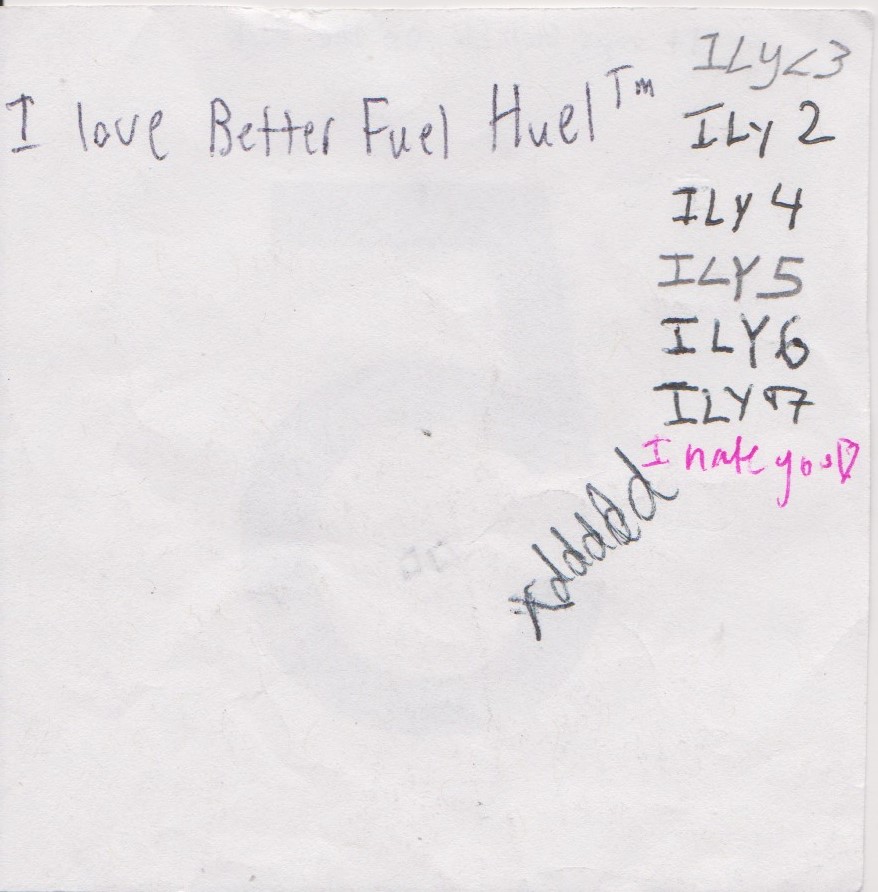 ILY<3
I love Better Fuel Huel™
ILY 2
ILY 4
ILY 5
ILY 6
ILY 7
I hate you♡
xdddddd